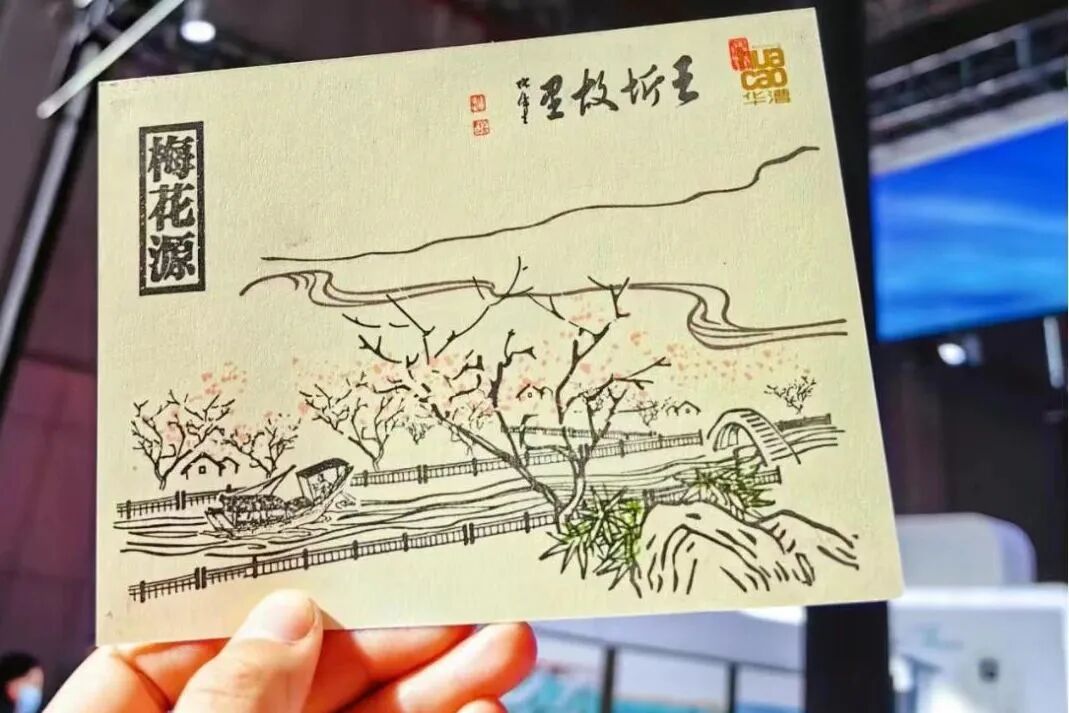 梅花源
王圻故里
hua
cao
华漕